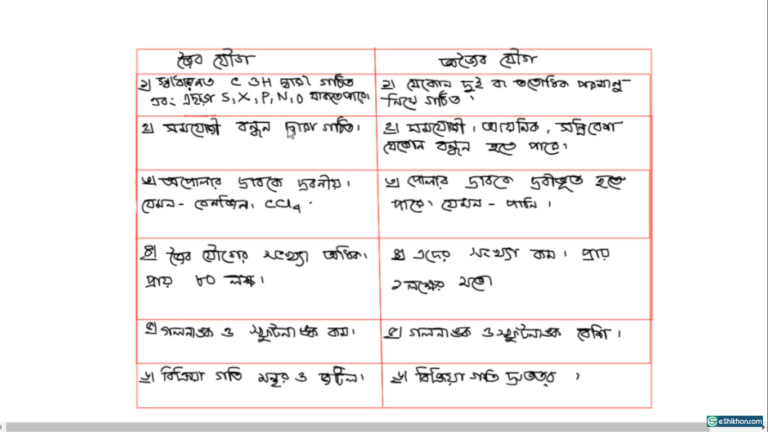 জৈব যৌগ
অজৈব যৌগ
১) স্বাধারনত C ও H দ্বারা গঠিত
এবং এছাড়া S, X, P, N, O থাকতে পারে।
১) যেকোন দুই বা ততোধিক পরমাণু
নিয়ে গঠিত।
২) সমযোজী বন্ধন দ্বারা গঠিত।
২) সমযোজী, আয়নিক, সন্নিবেশ
যেকোন বন্ধন হতে পারে।
৩) অপোলার দ্রাবকে দ্রবনীয়।
যেমন- বেনজিন, CCl4.
৩) পোলার দ্রাবকে দ্রবীভূত হতে
পারে। যেমন - পানি।
৪) জৈব যৌগের সংখ্যা অধিক।
প্রায় ৮০ লক্ষ।
৪) এদের সংখ্যা কম। প্রায়
২ লক্ষের মতো
৫) গলনাঙ্ক ও স্ফুটনাঙ্ক কম।
৫) গলনাঙ্ক ও স্ফুটনাঙ্ক বেশি।
৬) বিক্রিয়া গতি মন্থর ও জটিল।
৬) বিক্রিয়া গতি দ্রুততর।
eShikhon.com